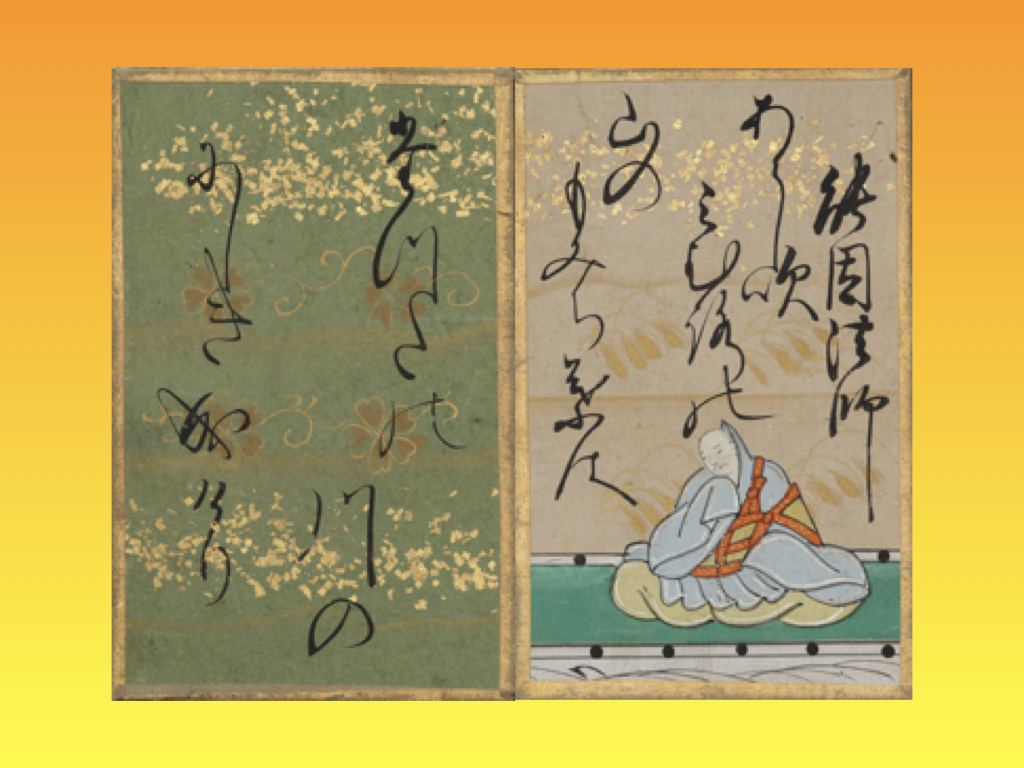 能因法師
あらし吹
みむろの
山の
もみち葉は
たつたの
川の
にしき
なりけり